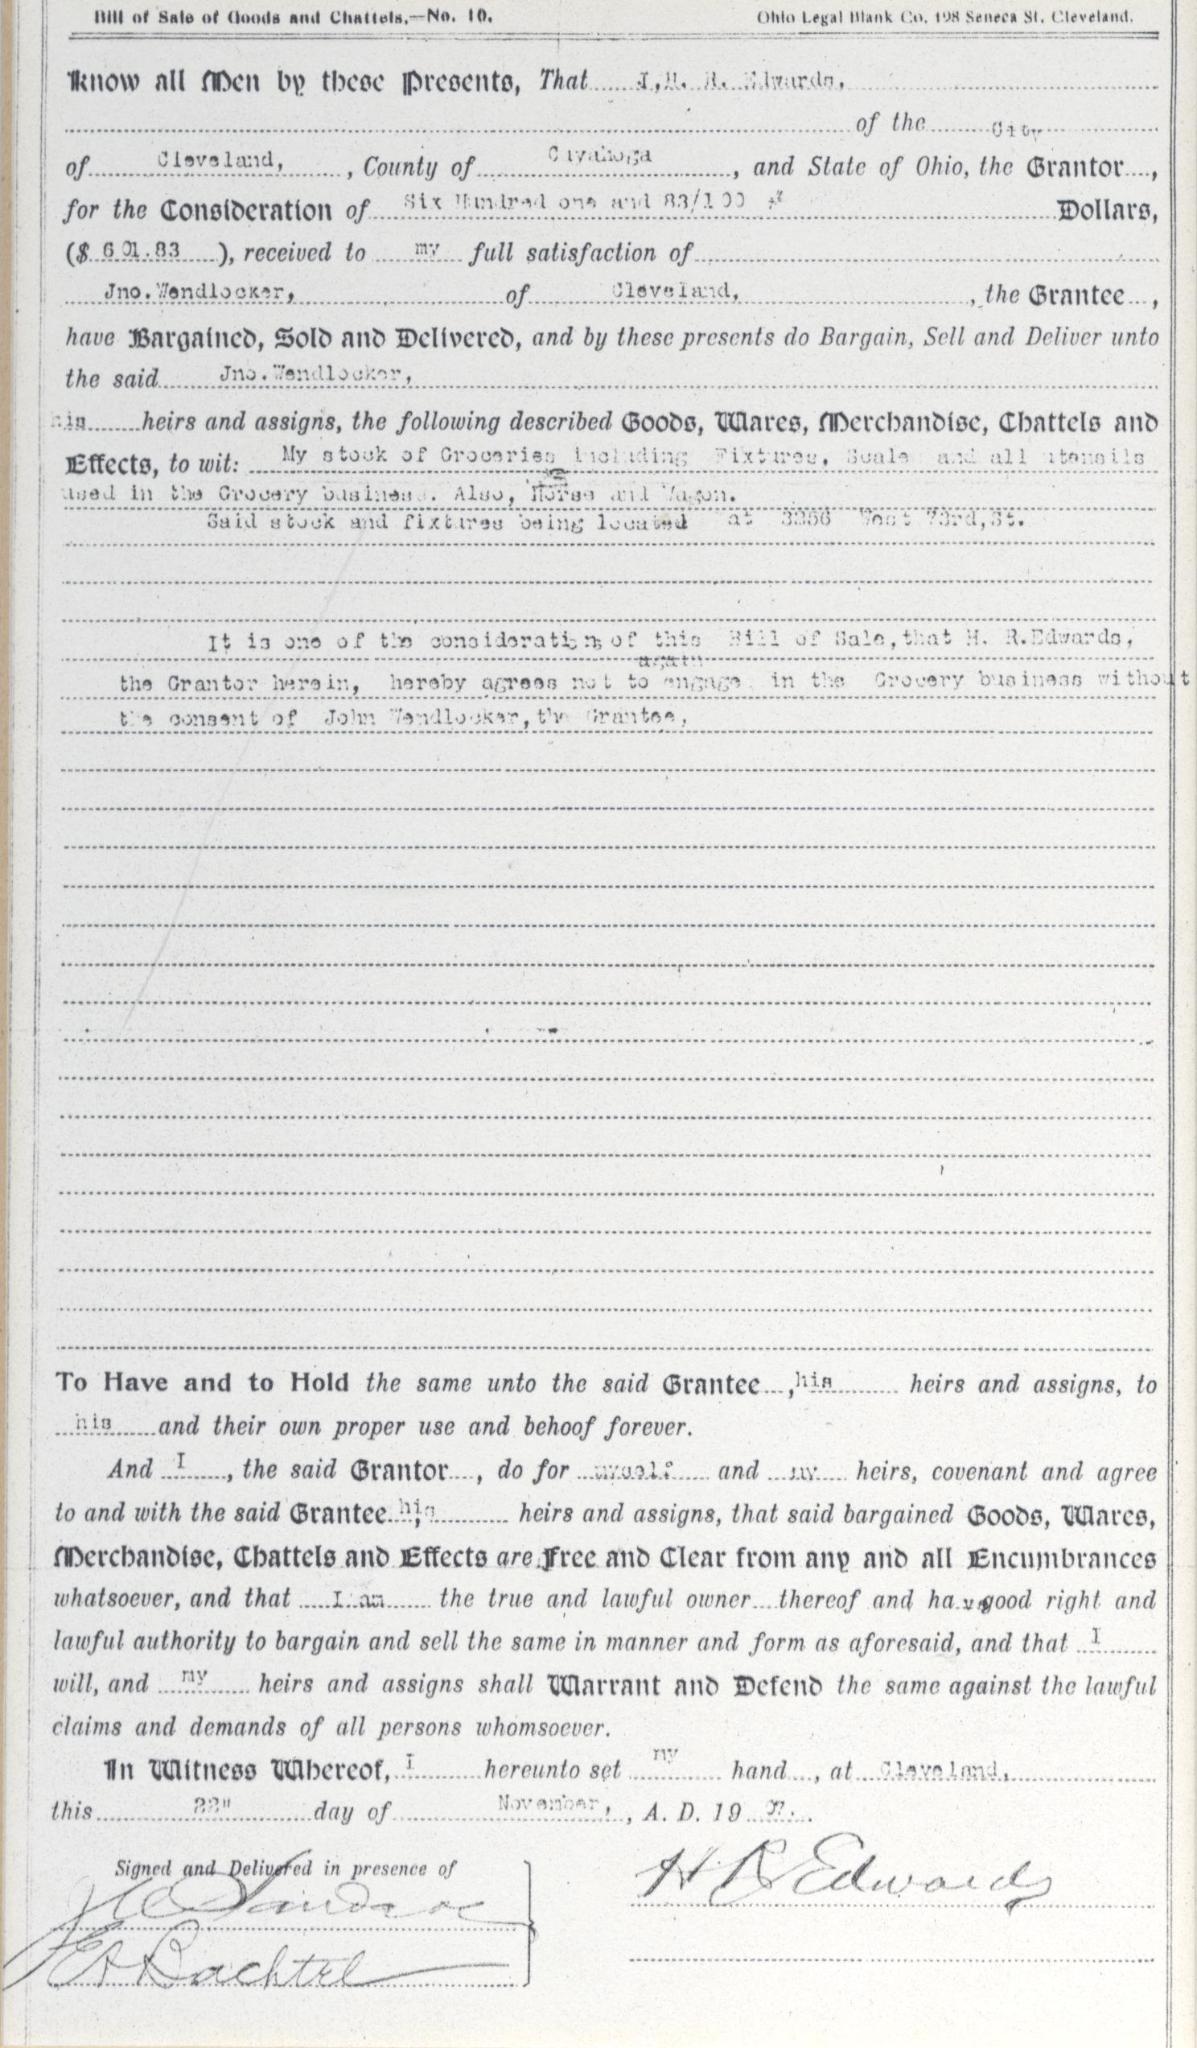 Bill of Sale of Goods and Chattels,—No. 10. Ohio Legal Blank Co. 198 Seneca St. Cleveland.
Know all Men by these Presents, That I,H. R. Edwards,
of the City
of Cleveland, , County of Cuyahoga , and State of Ohio, the Grantor ,
for the Consideration of Six Hundred one and 83/100 Dollars,
($ 601.83 ), received to my full satisfaction of
Jno.Wendlocker, of Cleveland, , the Grantee ,
have Bargained, Sold and Delivered, and by these presents do Bargain, Sell and Deliver unto
the said Jno.Wendlocker,
his heirs and assigns, the following described Goods, Wares, Merchandise, Chattels and
Effects, to wit: My stock of Groceries including Fixtures, Scale and all utensils
used in the Grocery business. Also, Horse and Wagon.
Said stock and fixtures being located at 3256 West 73rd,St.
It is one of the consideration of this Bill of Sale,that H. R.Edwards,
again
the Grantor herein, hereby agrees not to engage in the Grocery business without
the consent of John Wendlocker,the Grantee,
To Have and to Hold the same unto the said Grantee , his heirs and assigns, to
his and their own proper use and behoof forever.
And I , the said Grantor , do for myself and my heirs, covenant and agree
to and with the said Grantee , his heirs and assigns, that said bargained Goods, Wares,
Merchandise, Chattels and Effects are Free and Clear from any and all Encumbrances
whatsoever, and that I am the true and lawful owner thereof and ha ve good right and
lawful authority to bargain and sell the same in manner and form as aforesaid, and that I
will, and my heirs and assigns shall Warrant and Defend the same against the lawful
claims and demands of all persons whomsoever.
In Witness Whereof, I hereunto set my hand , at Cleveland,
this 22" day of November, , A. D. 19 07. .
Signed and Delivered in presence of
H R Edwards
Bachtel